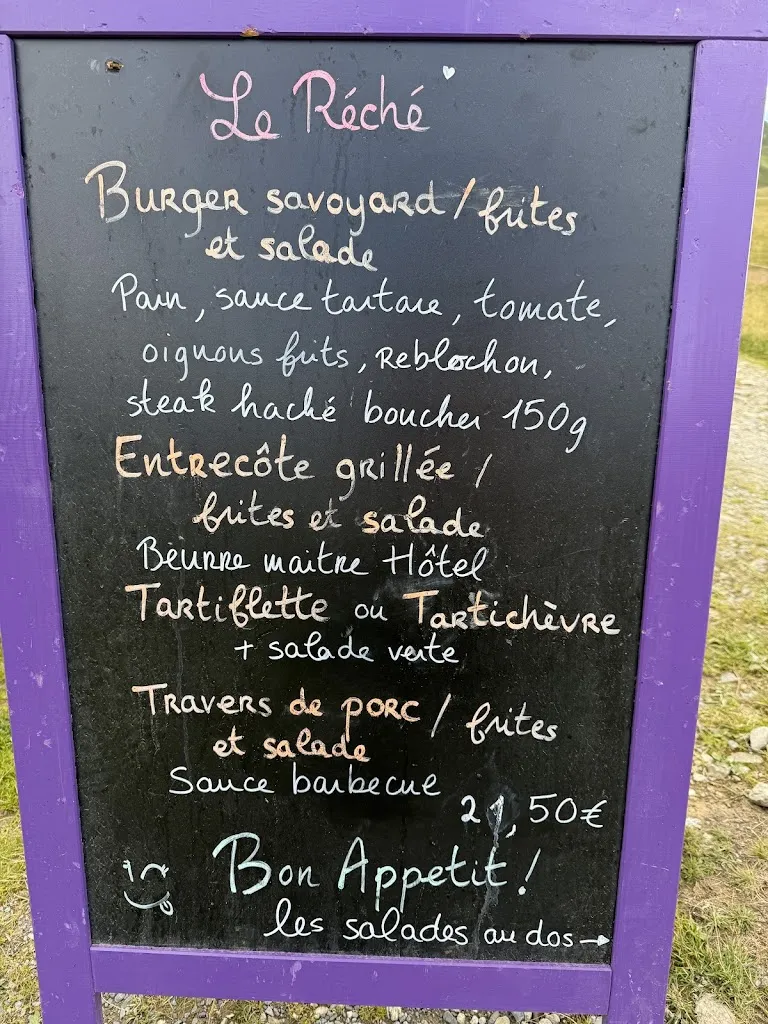 Le Réché
Burger savoyard / frites
et salade
Pain, sauce tartare, tomate,
oignons frits, Reblochon,
steak haché boucher 150g
Entrecôte grillée /
frites et salade
Beurre maitre Hôtel
Tartiflette ou Tartichèvre
+ salade verte
Travers de porc / frites
et salade
Sauce barbecue
21,50€
Bon Appetit !
les salades au dos →